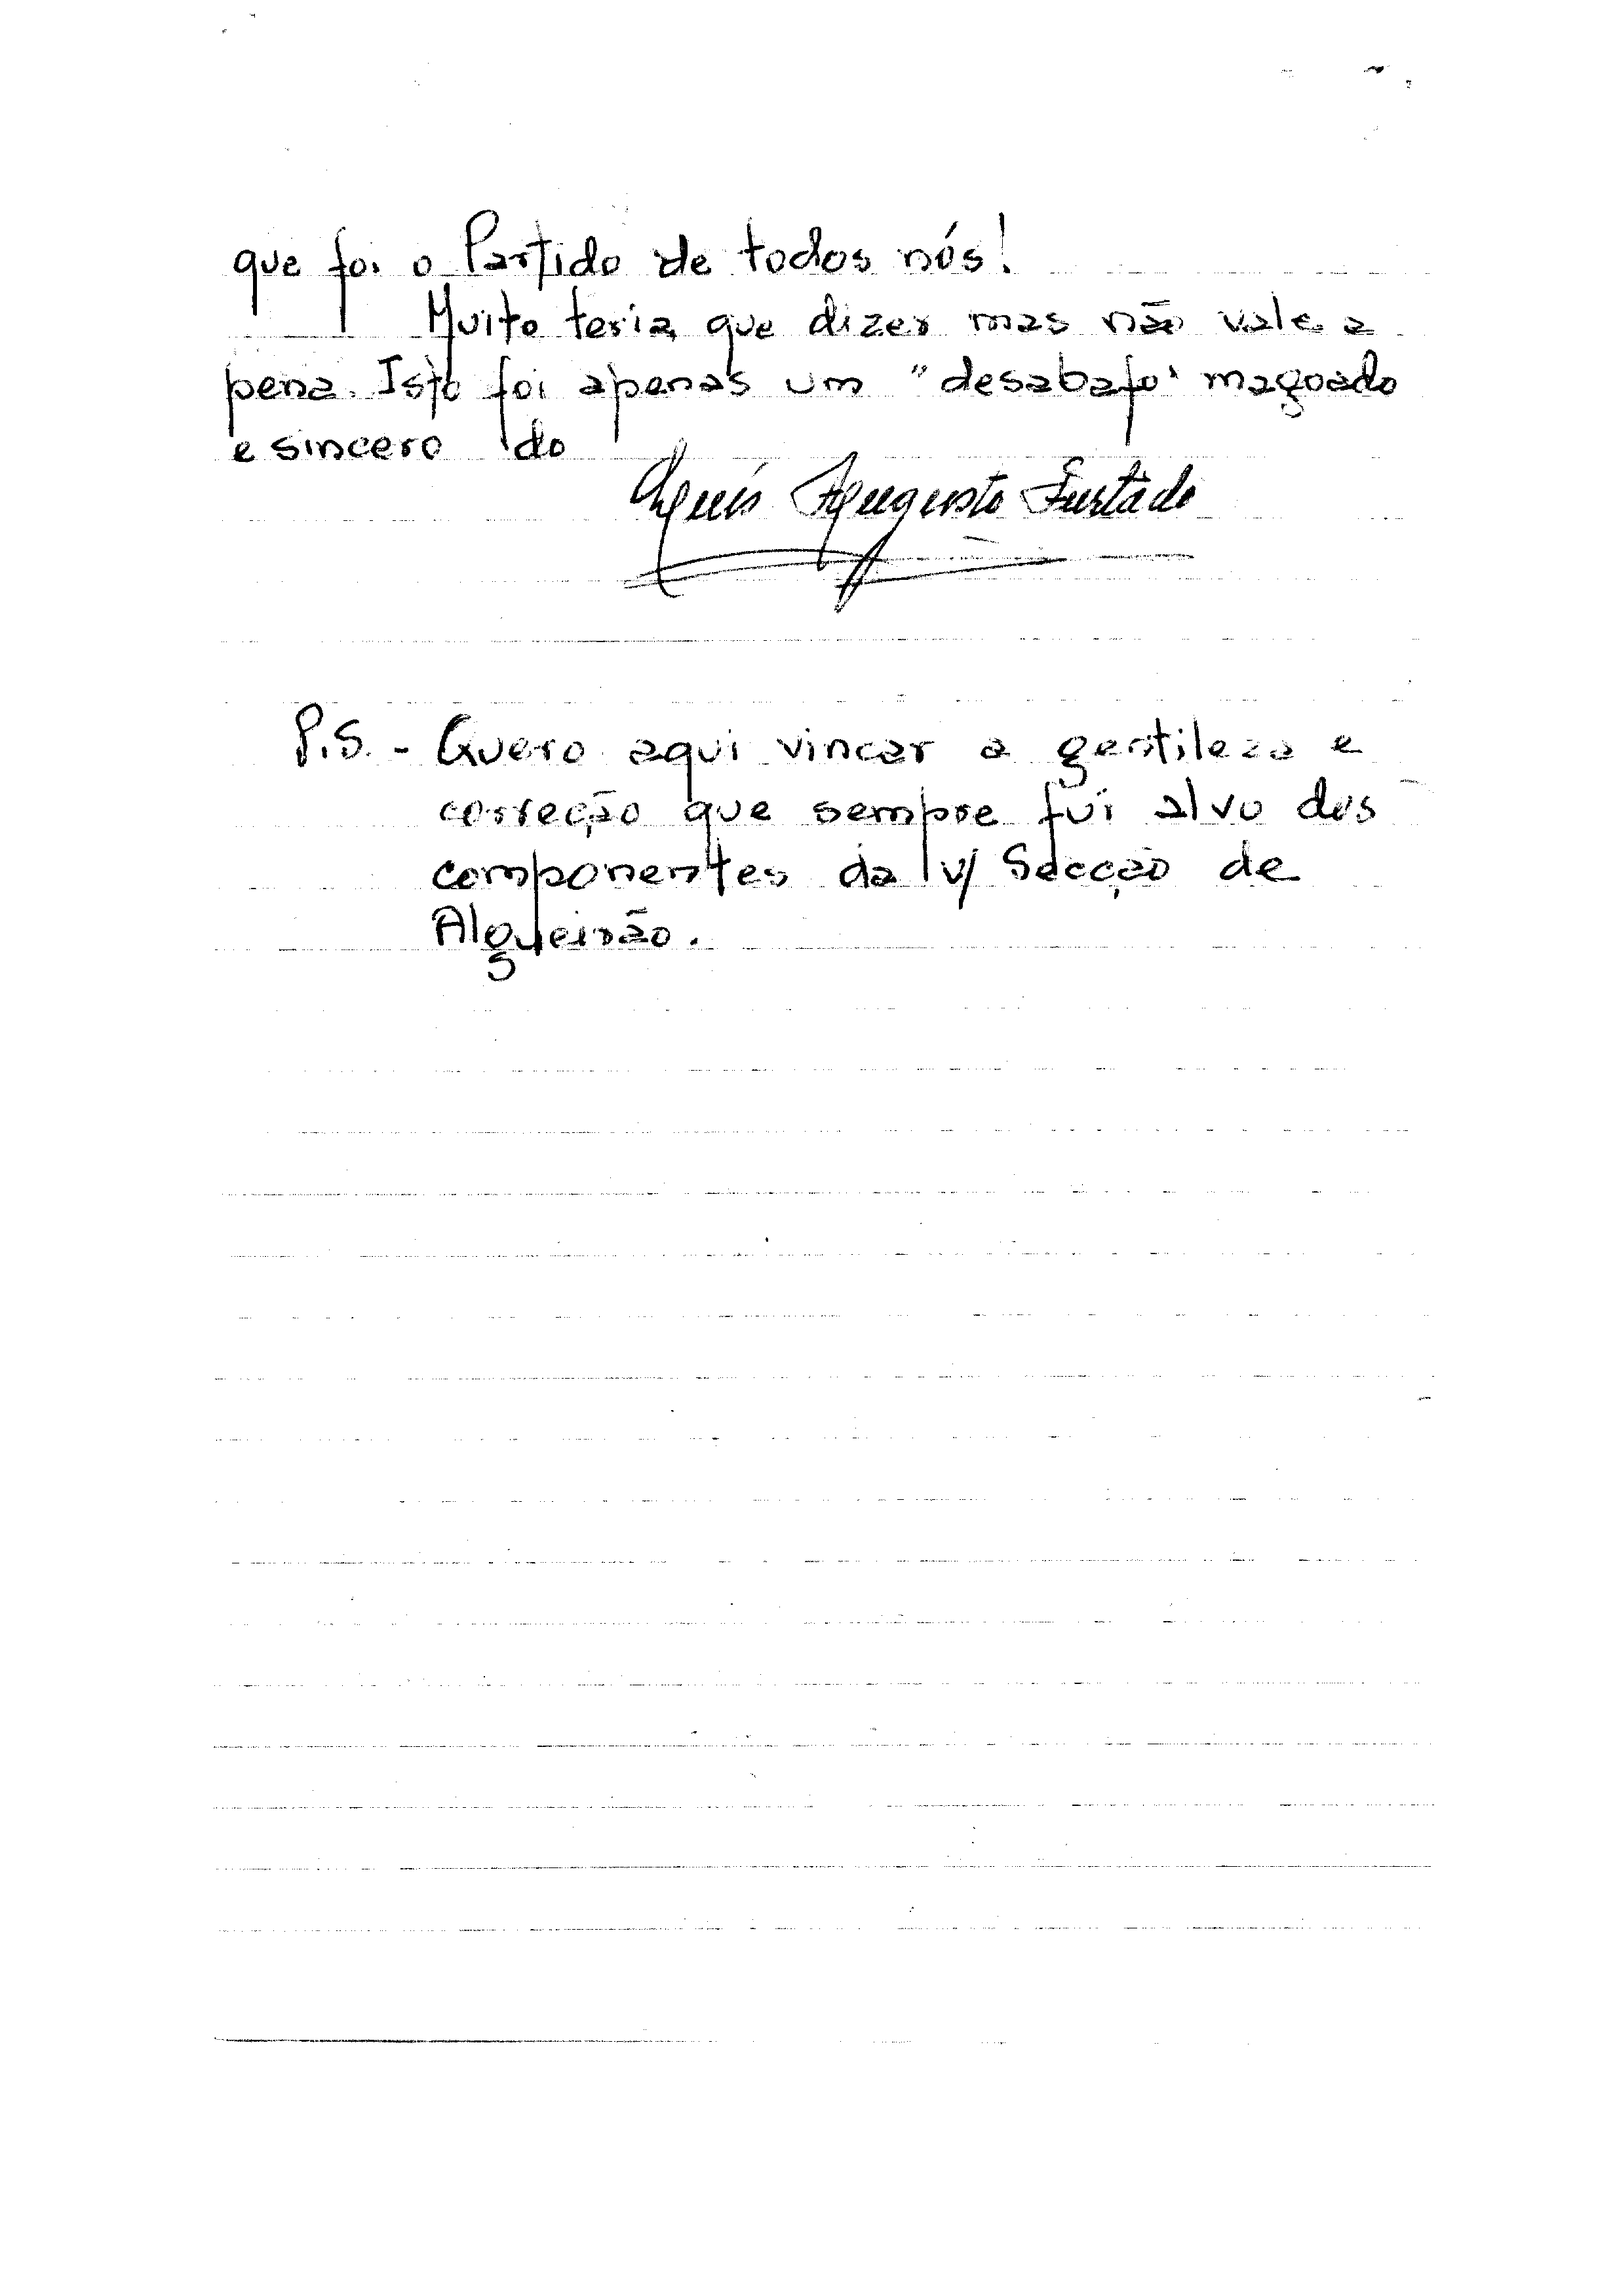 que foi o Partido de todos nós!
Muito teria que dizer mas não vale a
pena. Isto foi apenas um "desabafo" magoado
e sincero do
Luís Augusto Furtado
P.S. - Quero aqui vincar a gentileza e
correção que sempre fui alvo dos
componentes da v/ Secção de
Algueirão.